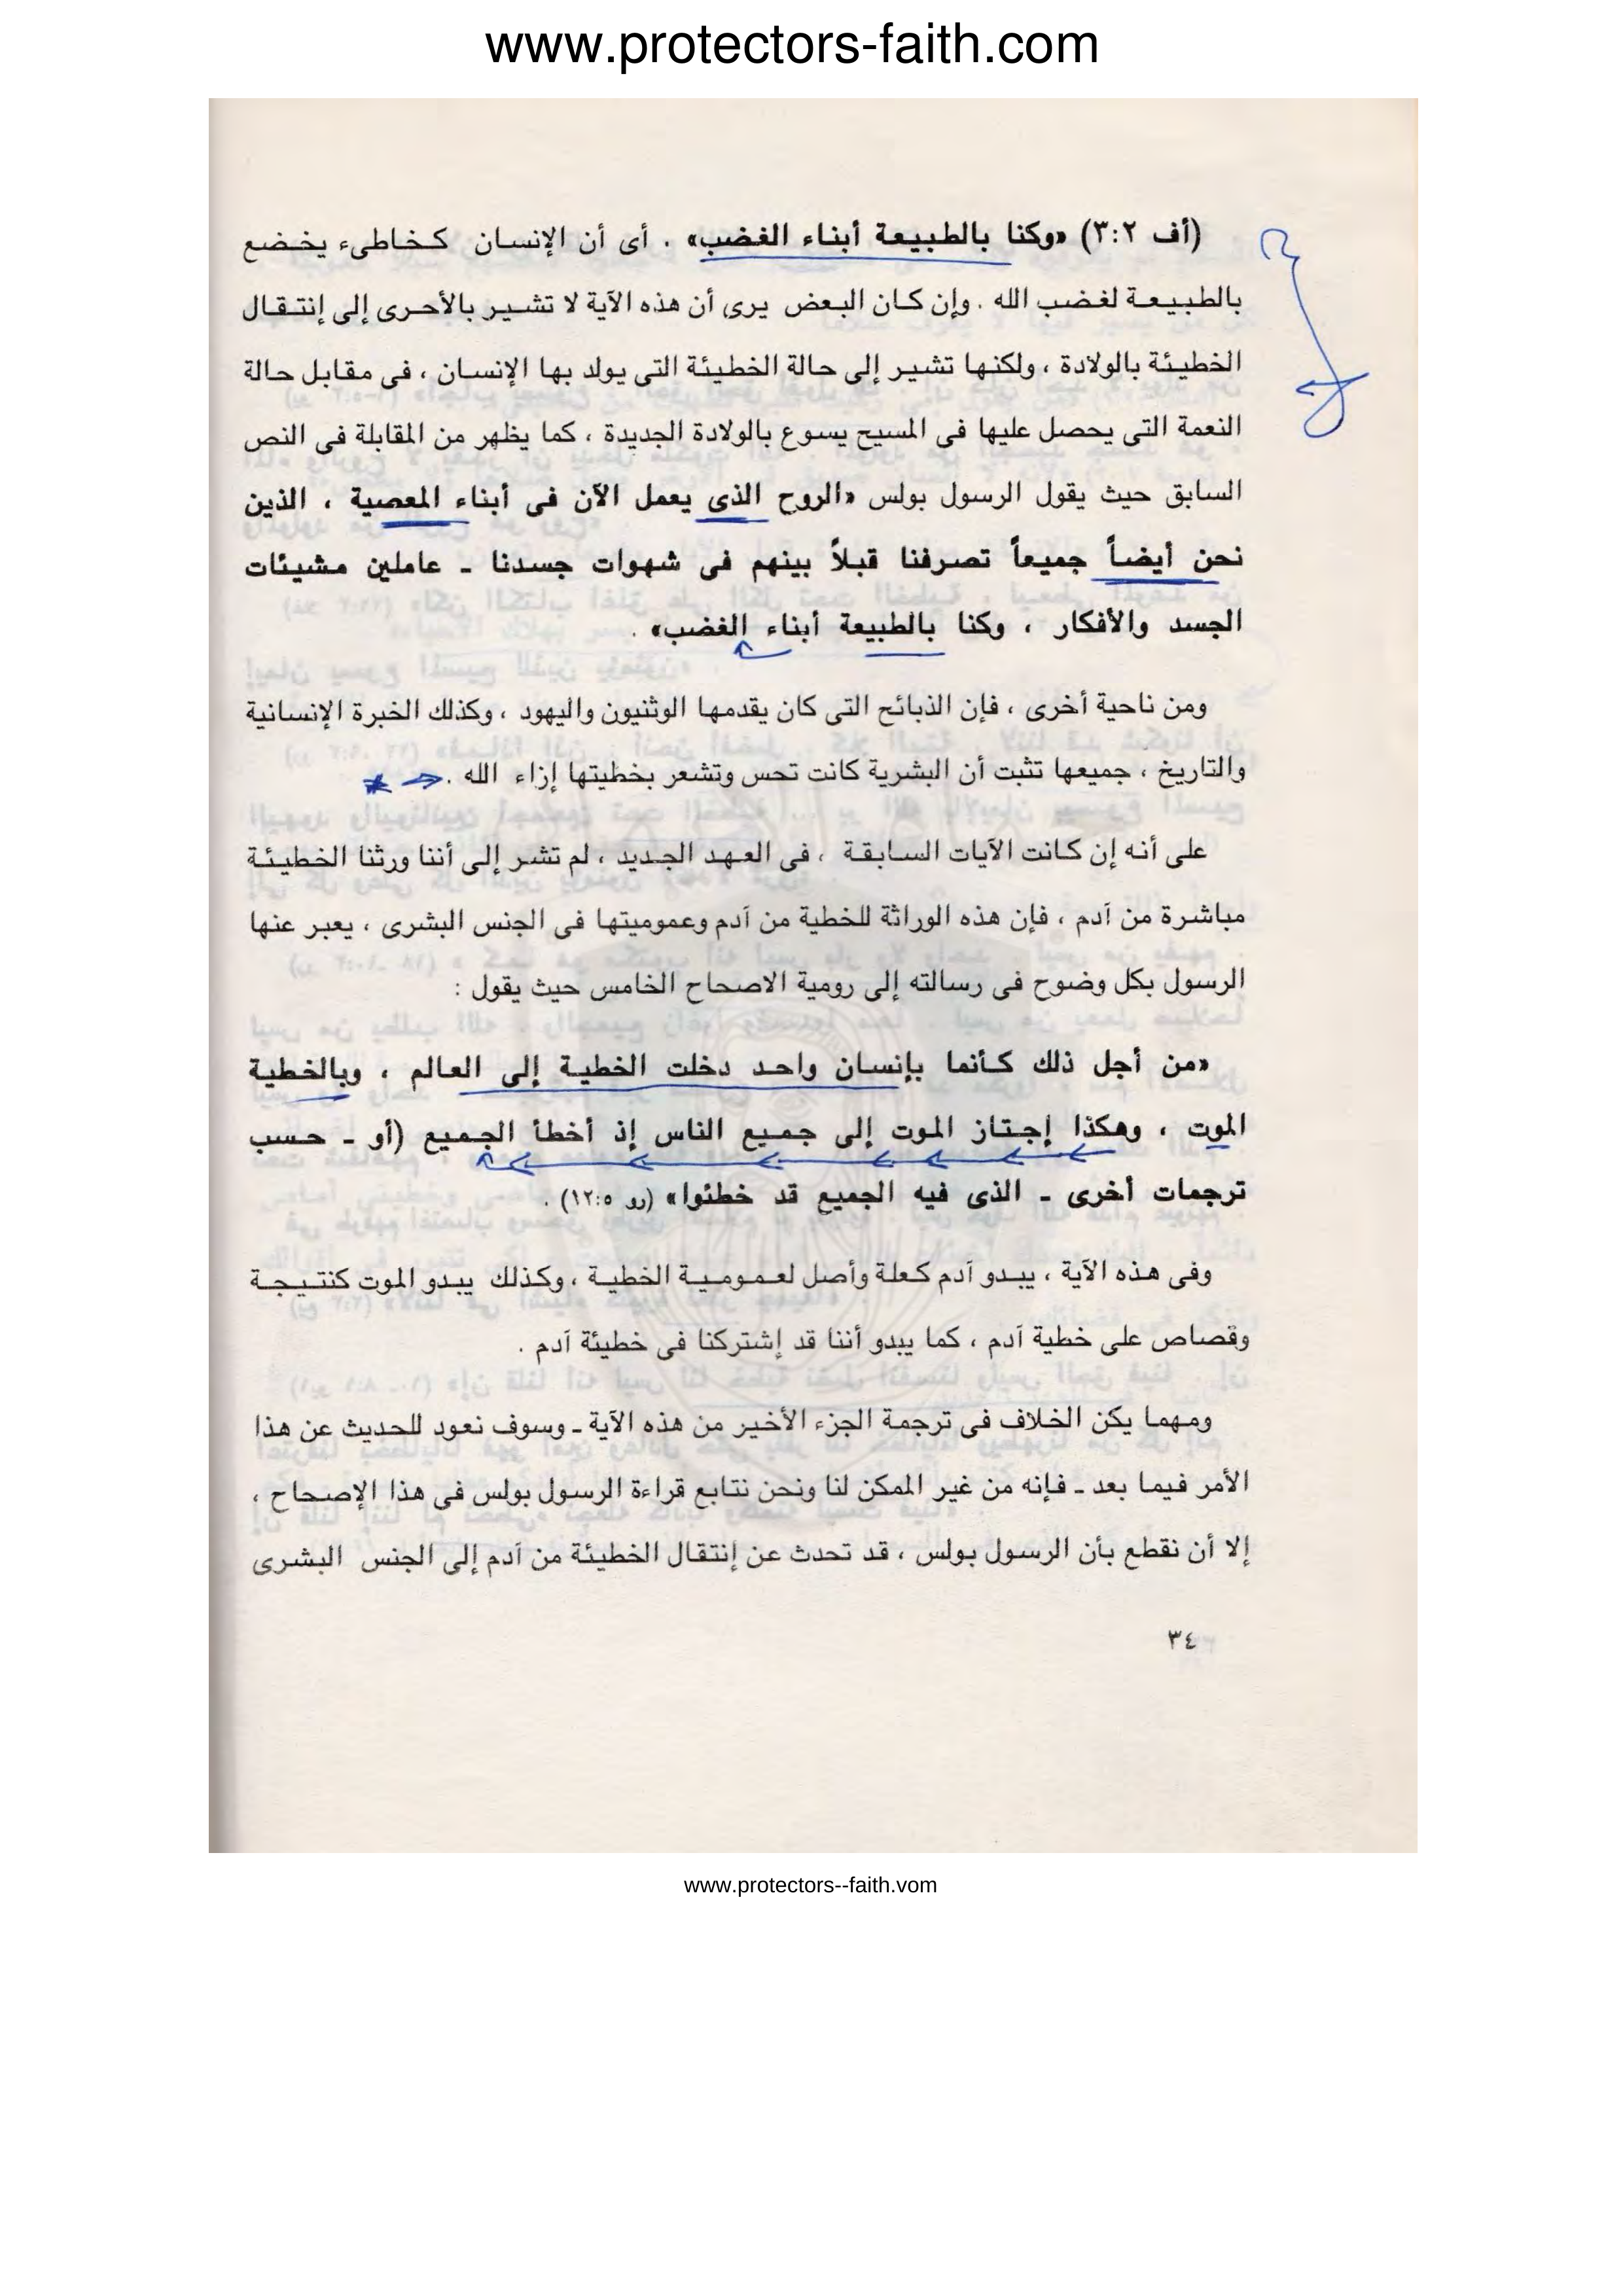 www.protectors-faith.com
(أف ٣:٢) «وكنا بالطبيعة أبناء الغضب» . أى أن الإنسان كخاطىء يخضع
بالطبيعة لغضب الله . وإن كان البعض يرى أن هذه الآية لا تشير بالأحرى إلى إنتقال
الخطيئة بالولادة ، ولكنها تشير إلى حالة الخطيئة التى يولد بها الإنسان ، فى مقابل حالة
النعمة التى يحصل عليها فى المسيح يسوع بالولادة الجديدة ، كما يظهر من المقابلة فى النص
السابق حيث يقول الرسول بولس «الروح الذى يعمل الآن فى أبناء المعصية ، الذين
نحن أيضاً جميعاً تصرفنا قبلاً بينهم فى شهوات جسدنا ـ عاملين مشيئات
الجسد والأفكار ، وكنا بالطبيعة أبناء الغضب» .
ومن ناحية أخرى ، فإن الذبائح التى كان يقدمها الوثنيون واليهود ، وكذلك الخبرة الإنسانية
والتاريخ ، جميعها تثبت أن البشرية كانت تحس وتشعر بخطيتها إزاء الله .
على أنه إن كانت الآيات السابقة ، فى العهد الجديد ، لم تشر إلى أننا ورثنا الخطيئة
مباشرة من آدم ، فإن هذه الوراثة للخطية من آدم وعموميتها فى الجنس البشرى ، يعبر عنها
الرسول بكل وضوح فى رسالته إلى رومية الاصحاح الخامس حيث يقول :
«من أجل ذلك كأنما بإنسان واحد دخلت الخطية إلى العالم ، وبالخطية
الموت ، وهكذا إجتاز الموت إلى جميع الناس إذ أخطأ الجميع (أو ـ حسب
ترجمات أخرى ـ الذى فيه الجميع قد خطئوا» (رو ١٢:٥) .
وفى هذه الآية ، يبدو آدم كعلة وأصل لعمومية الخطية ، وكذلك يبدو الموت كنتيجة
وقصاص على خطية آدم ، كما يبدو أننا قد إشتركنا فى خطيئة آدم .
ومهما يكن الخلاف فى ترجمة الجزء الأخير من هذه الآية ـ وسوف نعود للحديث عن هذا
الأمر فيما بعد ـ فإنه من غير الممكن لنا ونحن نتابع قراءة الرسول بولس فى هذا الإصحاح ،
إلا أن نقطع بأن الرسول بولس ، قد تحدث عن إنتقال الخطيئة من آدم إلى الجنس البشرى
٣٤
www.protectors--faith.vom